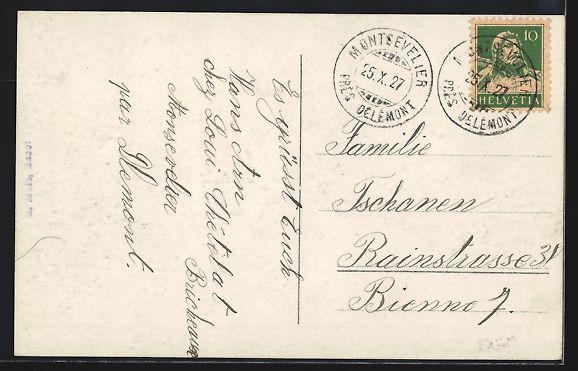 MONTSEVELIER
25.X.27
PRÈS DELÉMONT
10
HELVETIA
MONTSEVELIER
25.X.27
PRÈS DELÉMONT
Es grüsst Euch
Hans
chez Loui Chételat
Monsevelier
par Delemont.
Familie
Tschanen
Rainstrasse 31
Bienne 7.